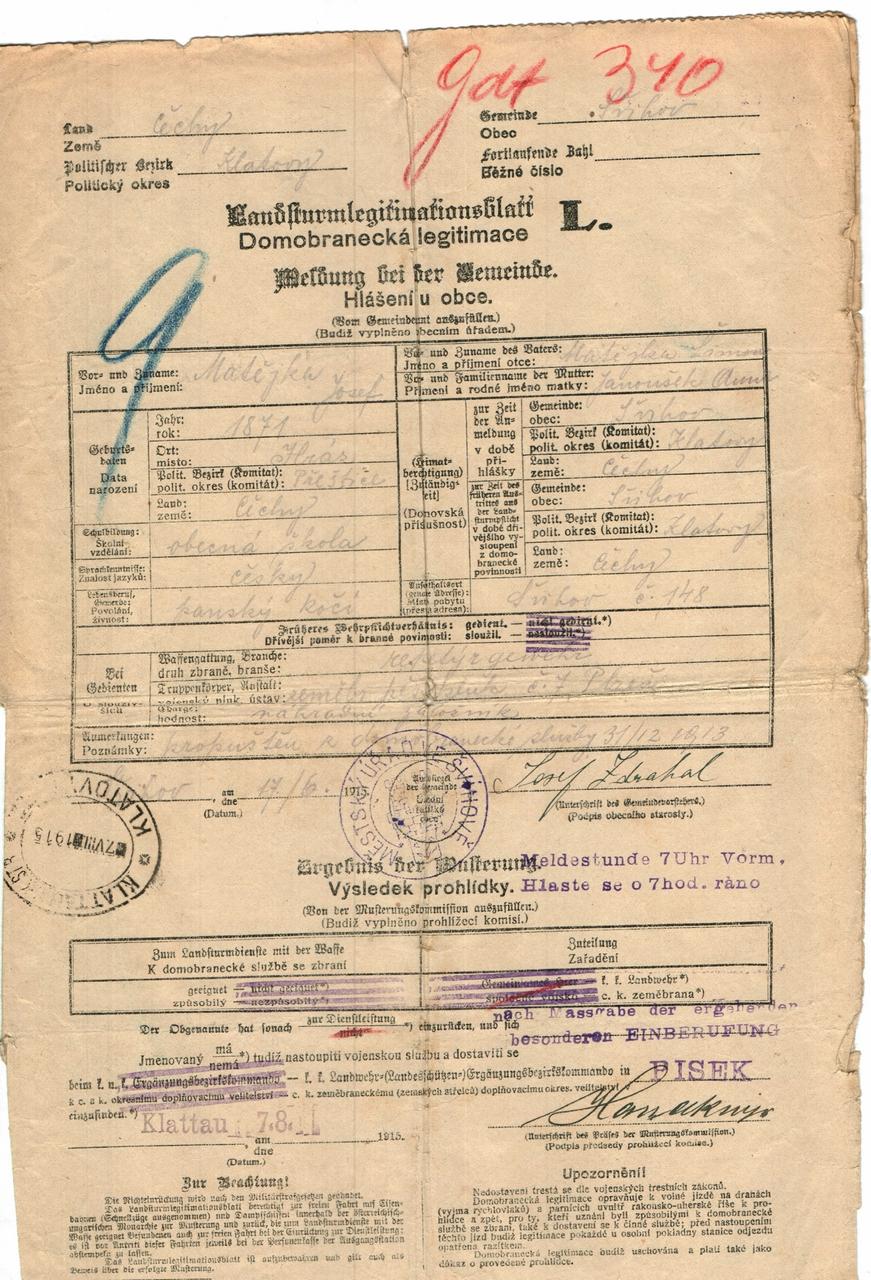 gdt 340
Land Čechy
Země
Politischer Bezirk Klatovy
Politický okres
Gemeinde Švihov
Obec
Fortlaufende Zahl
Běžné číslo
Landsturmlegitimationsblatt L.
Domobranecká legitimace
9
Meldung bei der Gemeinde.
Hlášení u obce.
(Vom Gemeindeamt auszufüllen.)
(Budiž vyplněno obecním úřadem.)
Vor- und Zuname: Matějka
Jméno a příjmení: Josef
Vor- und Zuname des Vaters: Matějka Šimon
Jméno a příjmení otce:
Vor- und Familienname der Mutter: Janoušek Anna
Příjmení a rodné jméno matky:
Geburts-
daten
Data
narození
Jahr:
rok: 1871
Ort:
místo:
Polit. Bezirk (Komitat):
polit. okres (komitát): Přeštice
Land:
země: Čechy
(Heimat-
berechtigung)
[Zuständig-
keit]
(Domovská
příslušnost)
zur Zeit
der An-
meldung
v době
při-
hlášky
Gemeinde:
obec: Švihov
Polit. Bezirk (Komitat):
polit. okres (komitát): Klatovy
Land:
země: Čechy
zur Zeit des
früheren Aus-
trittes aus
der Land-
sturmpflicht
v době dří-
vějšího vy-
stoupení
z domo-
branecké
povinnosti
Gemeinde:
obec: Švihov
Polit. Bezirk (Komitat):
polit. okres (komitát): Klatovy
Land:
země: Čechy
Schulbildung:
Školní
vzdělání: obecná škola
Sprachkenntnisse:
Znalost jazyků: česky
Lebensberuf,
Gewerbe:
Povolání,
živnost: panský kočí
Aufenthaltsort
(genaue Adresse):
Místo pobytu
(přesná adresa): Švihov č. 148
Früheres Wehrpflichtverhältnis: gedient. — nicht gedient.*)
Dřívější poměr k branné povinnosti: sloužil. — nesloužil.*)
Bei
Gedienten
U slouživ-
ších
Waffengattung, Branche:
druh zbraně, branše:
Truppenkörper, Anstalt:
vojenský pluk, ústav: zeměbr. pěš. pluk č. 7
Charge:
hodnost: náhradní záložník
Anmerkungen:
Poznámky: propuštěn z domobranecké služby 31/12 1913
am
dne 17/6. 1915
(Datum.)
MĚSTSKÝ ÚŘAD VE ŠVIHOVĚ
Josef Zdráhal
(Unterschrift des Gemeindevorstehers.)
(Podpis obecního starosty.)
KLATOVY
7 VIII 1915
KLATTAU
Ergebnis der Musterung.
Výsledek prohlídky.
Meldestunde 7Uhr Vorm.
Hlaste se o 7hod. ráno
(Von der Musterungskommission auszufüllen.)
(Budiž vyplněno prohlížecí komisí.)
Zum Landsturmdienste mit der Waffe
K domobranecké službě se zbraní
Zuteilung
Zařadění
geeignet — nicht geeignet*)
způsobilý — nezpůsobilý*)
Gemeinsames Heer — k. k. Landwehr*)
společné vojsko — c. k. zeměbrana*)
nach Massgabe der ergehenden
besonderen EINBERUFUNG
Der Obgenannte hat sonach zur Dienstleistung
nicht *) einzurücken, und sich
Jmenovaný má
nemá *) tudíž nastoupiti vojenskou službu a dostaviti se
beim k. u. k. Ergänzungsbezirkskommando — k. k. Landwehr-(Landesschützen-)Ergänzungsbezirkskommando in PISEK
k c. a k. okresnímu doplňovacímu velitelství — c. k. zeměbraneckému (zemských střelců) doplňovacímu okres. velitelství v
einzufinden.*)
Klattau 7.8.
am 1915.
dne
(Datum.)
(Unterschrift des Präses der Musterungskommission.)
(Podpis předsedy prohlížecí komise.)
Zur Beachtung!
Die Nichteinrückung wird nach den Militärstrafgesetzen geahndet.
Das Landsturmlegitimationsblatt berechtigt zur freien Fahrt auf Eisen-
bahnen (Schnellzüge ausgenommen) und Dampfschiffen innerhalb der österreichisch-
ungarischen Monarchie zur Musterung und zurück, die zum Landsturmdienste mit der
Waffe geeignet Befundenen auch zur freien Fahrt bei der Einrückung zur Dienstleistung;
es ist vor Antritt dieser Fahrten jeweils bei der Personenkasse der Ausgangsstation
abstempeln zu lassen.
Das Landsturmlegitimationsblatt ist aufzubewahren und gilt auch als
Beweis über die erfolgte Musterung.
Upozornění!
Nedostavení trestá se dle vojenských trestních zákonů.
Domobranecká legitimace opravňuje k volné jízdě na drahách
(vyjma rychlovlaků) a parnících uvnitř rakousko-uherské říše k pro-
hlídce a zpět, pro ty, kteří uznáni byli způsobilými k domobranecké
službě se zbraní, také k dostavení se k činné službě; před nastoupením
těchto jízd budiž legitimace pokaždé u osobní pokladny stanice odjezdu
opatřena razítkem.
Domobranecká legitimace budiž uschována a platí také jako
důkaz o provedené prohlídce.